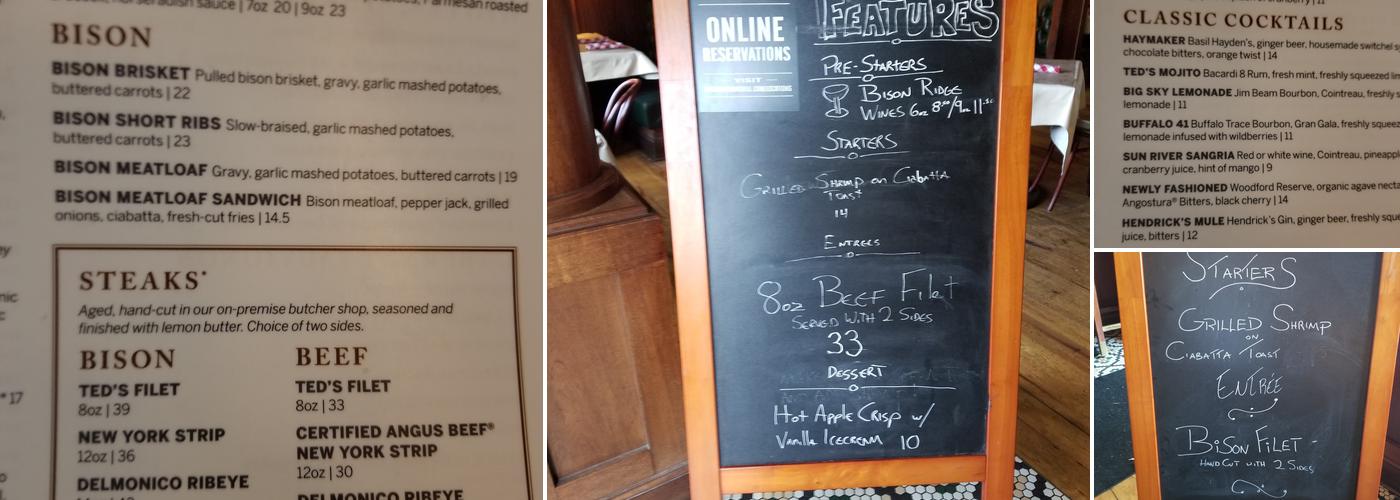 sauce | 7oz 20 | 9oz 23
Parmesan roasted
BISON
BISON BRISKET Pulled bison brisket, gravy, garlic mashed potatoes,
buttered carrots | 22
BISON SHORT RIBS Slow-braised, garlic mashed potatoes,
buttered carrots | 23
BISON MEATLOAF Gravy, garlic mashed potatoes, buttered carrots | 19
BISON MEATLOAF SANDWICH Bison meatloaf, pepper jack, grilled
onions, ciabatta, fresh-cut fries | 14.5
STEAKS*
Aged, hand-cut in our on-premise butcher shop, seasoned and
finished with lemon butter. Choice of two sides.
BISON
TED'S FILET
8oz | 39
NEW YORK STRIP
12oz | 36
DELMONICO RIBEYE
BEEF
TED'S FILET
8oz | 33
CERTIFIED ANGUS BEEF®
NEW YORK STRIP
12oz | 30
DELMONICO RIBEYE
17
ONLINE
RESERVATIONS
VISIT
FEATURES
PRE-STARTERS
BISON RIDGE
WINES 6oz
STARTERS
GRILLED SHRIMP on CIABATTA
TOAST
14
ENTREES
8oz BEEF FILET
SERVED WITH 2 SIDES
33
DESSERT
Hot Apple Crisp w/
Vanilla ICECREAM 10
CLASSIC COCKTAILS
HAYMAKER Basil Hayden's, ginger beer, housemade switchel
chocolate bitters, orange twist | 14
TED'S MOJITO Bacardi 8 Rum, fresh mint, freshly squeezed
BIG SKY LEMONADE Jim Beam Bourbon, Cointreau, freshly
lemonade | 11
BUFFALO 41 Buffalo Trace Bourbon, Gran Gala, freshly
lemonade infused with wildberries | 11
SUN RIVER SANGRIA Red or white wine, Cointreau,
cranberry juice, hint of mango | 9
NEWLY FASHIONED Woodford Reserve, organic agave
Angostura® Bitters, black cherry | 14
HENDRICK'S MULE Hendrick's Gin, ginger beer, freshly
juice, bitters | 12
STARTERS
GRILLED SHRIMP
ON
CIABATTA TOAST
ENTRÉE
BISON FILET -
HAND CUT WITH 2 SIDES